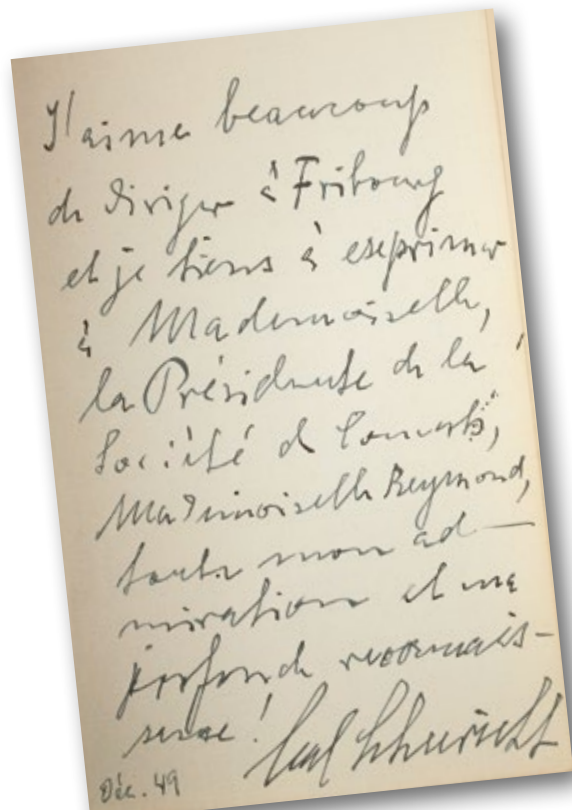 J'aime beaucoup
de diriger à Fribourg
et je tiens à exprimer
à Mademoiselle,
la Présidente de la
Société de Concerts,
Mademoiselle Reymond,
toute mon ad-
miration et ma
profonde reconnais-
sance !
Carl Schuricht
Déc. 49